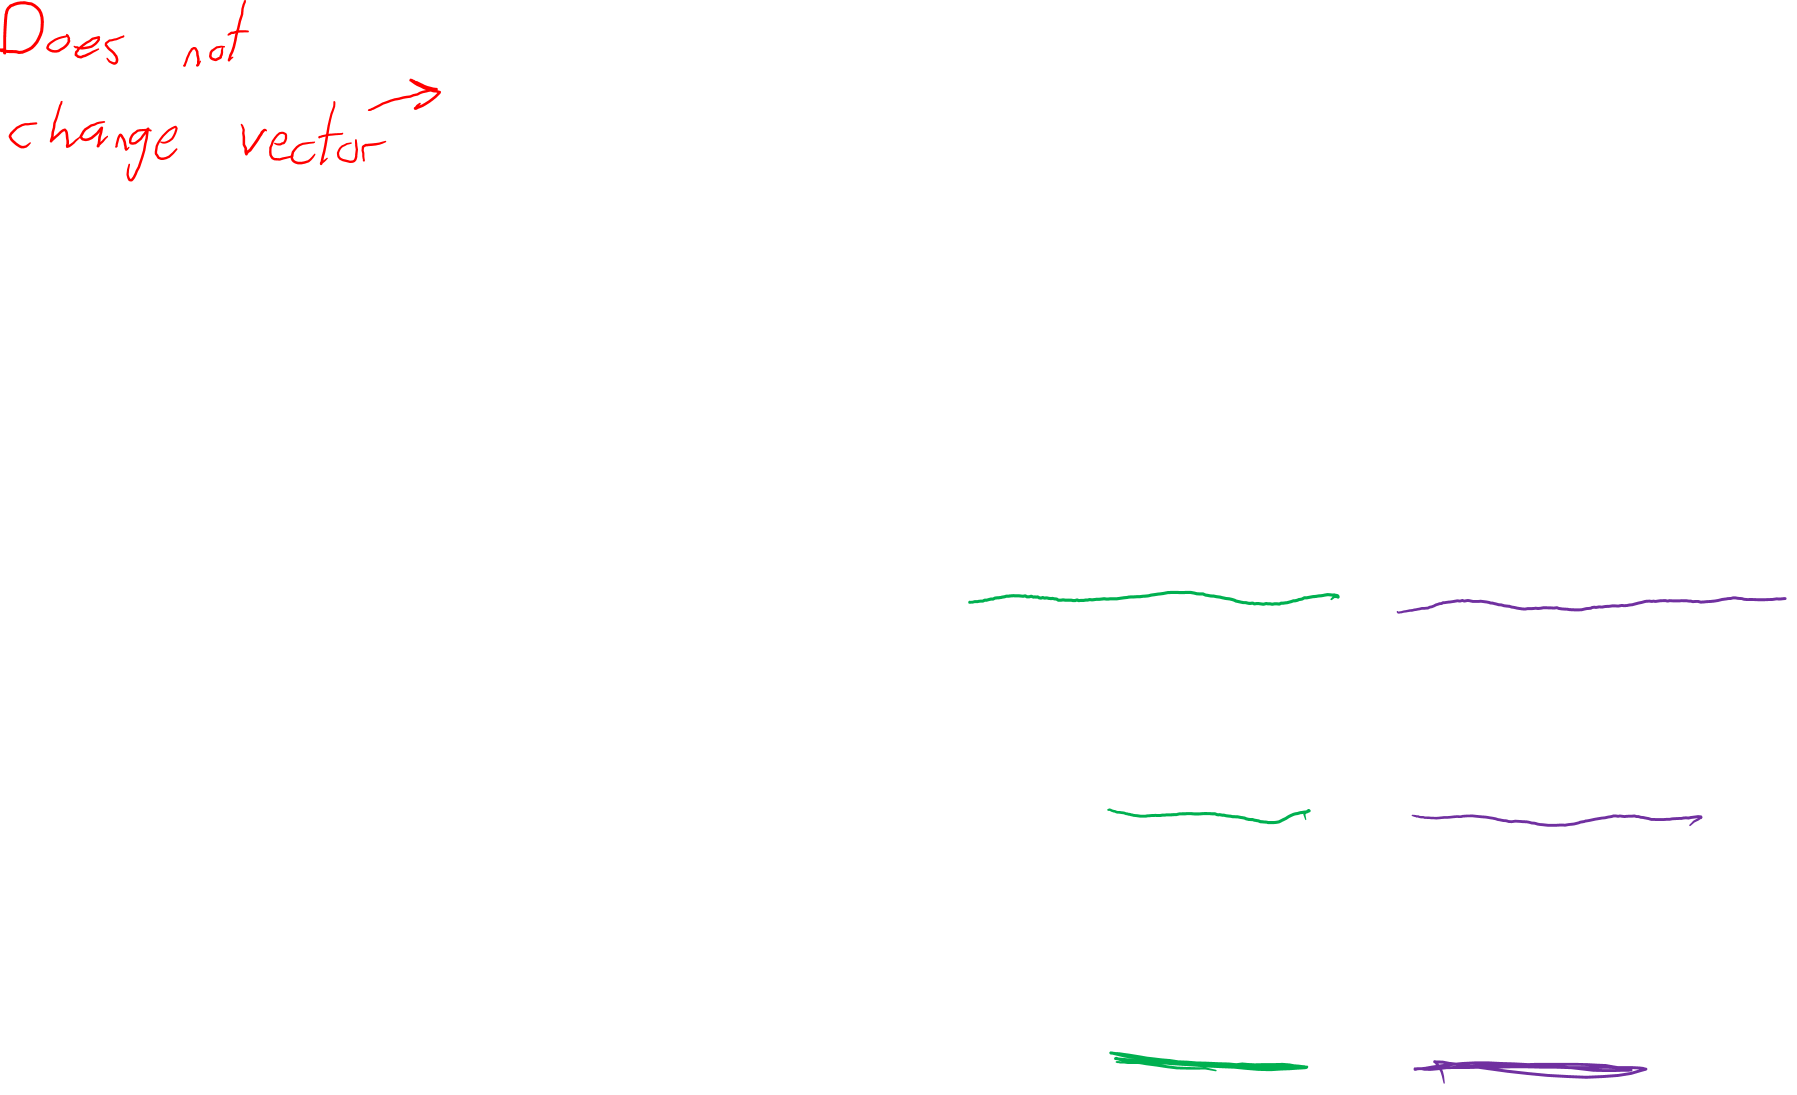 Does not
change vector